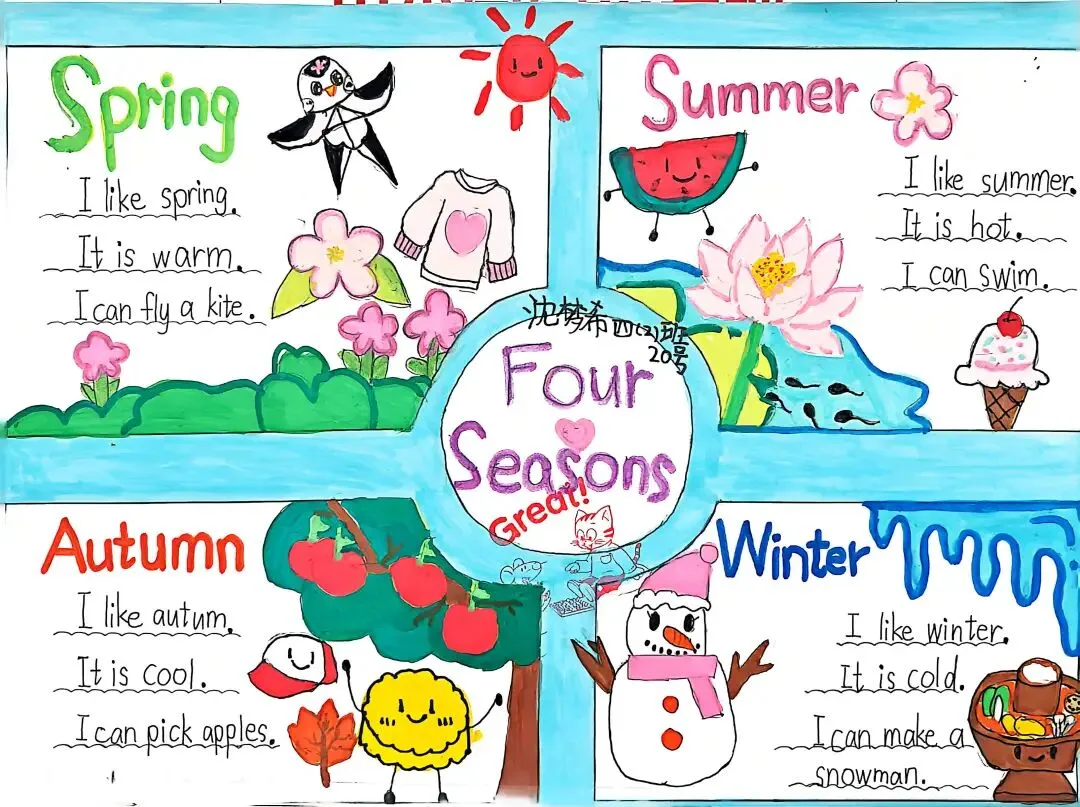 Spring
I like spring.
It is warm.
I can fly a kite.
Summer
I like summer.
It is hot.
I can swim.
沈梦希 四(2)班
20号
Four
Seasons
Great!
Autumn
I like autum.
It is cool.
I can pick apples.
Winter
I like winter.
It is cold.
I can make a
snowman.